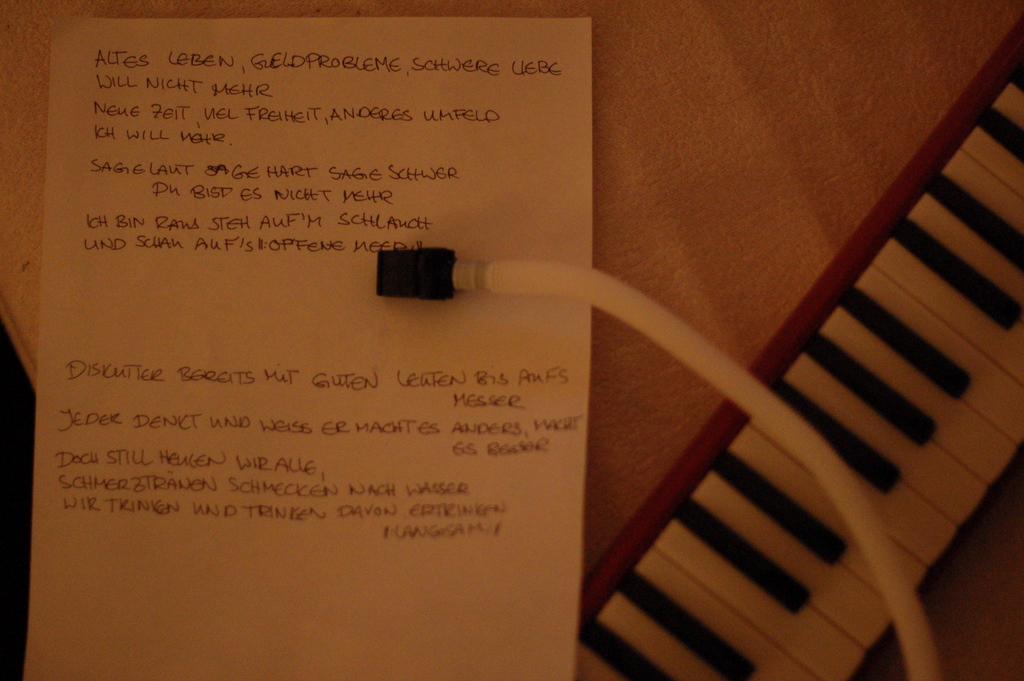 ALTES LEBEN, GELDPROBLEME, SCHWERE LIEBE
WILL NICHT MEHR
NEUE ZEIT, VIEL FREIHEIT, ANDERES UMFELD
ICH WILL MEHR.
SAGE LAUT SAGE HART SAGE SCHWER
DU BIST ES NICHT MEHR
ICH BIN RAUS STEH AUF'M SCHLAUCH
UND SCHAU AUF'S II: OFFENE MEER :II
DISKUTIER BEREITS MIT GUTEN LEUTEN BIS AUFS
MESSER
JEDER DENKT UND WEISS ER MACHT ES ANDERS, MACHT
ES BESSER
DOCH STILL HEULEN WIR ALLE,
SCHMERZTRÄNEN SCHMECKEN NACH WASSER
WIR TRINKEN UND TRINKEN DAVON ERTRINKEN
/:LANGSAM:/